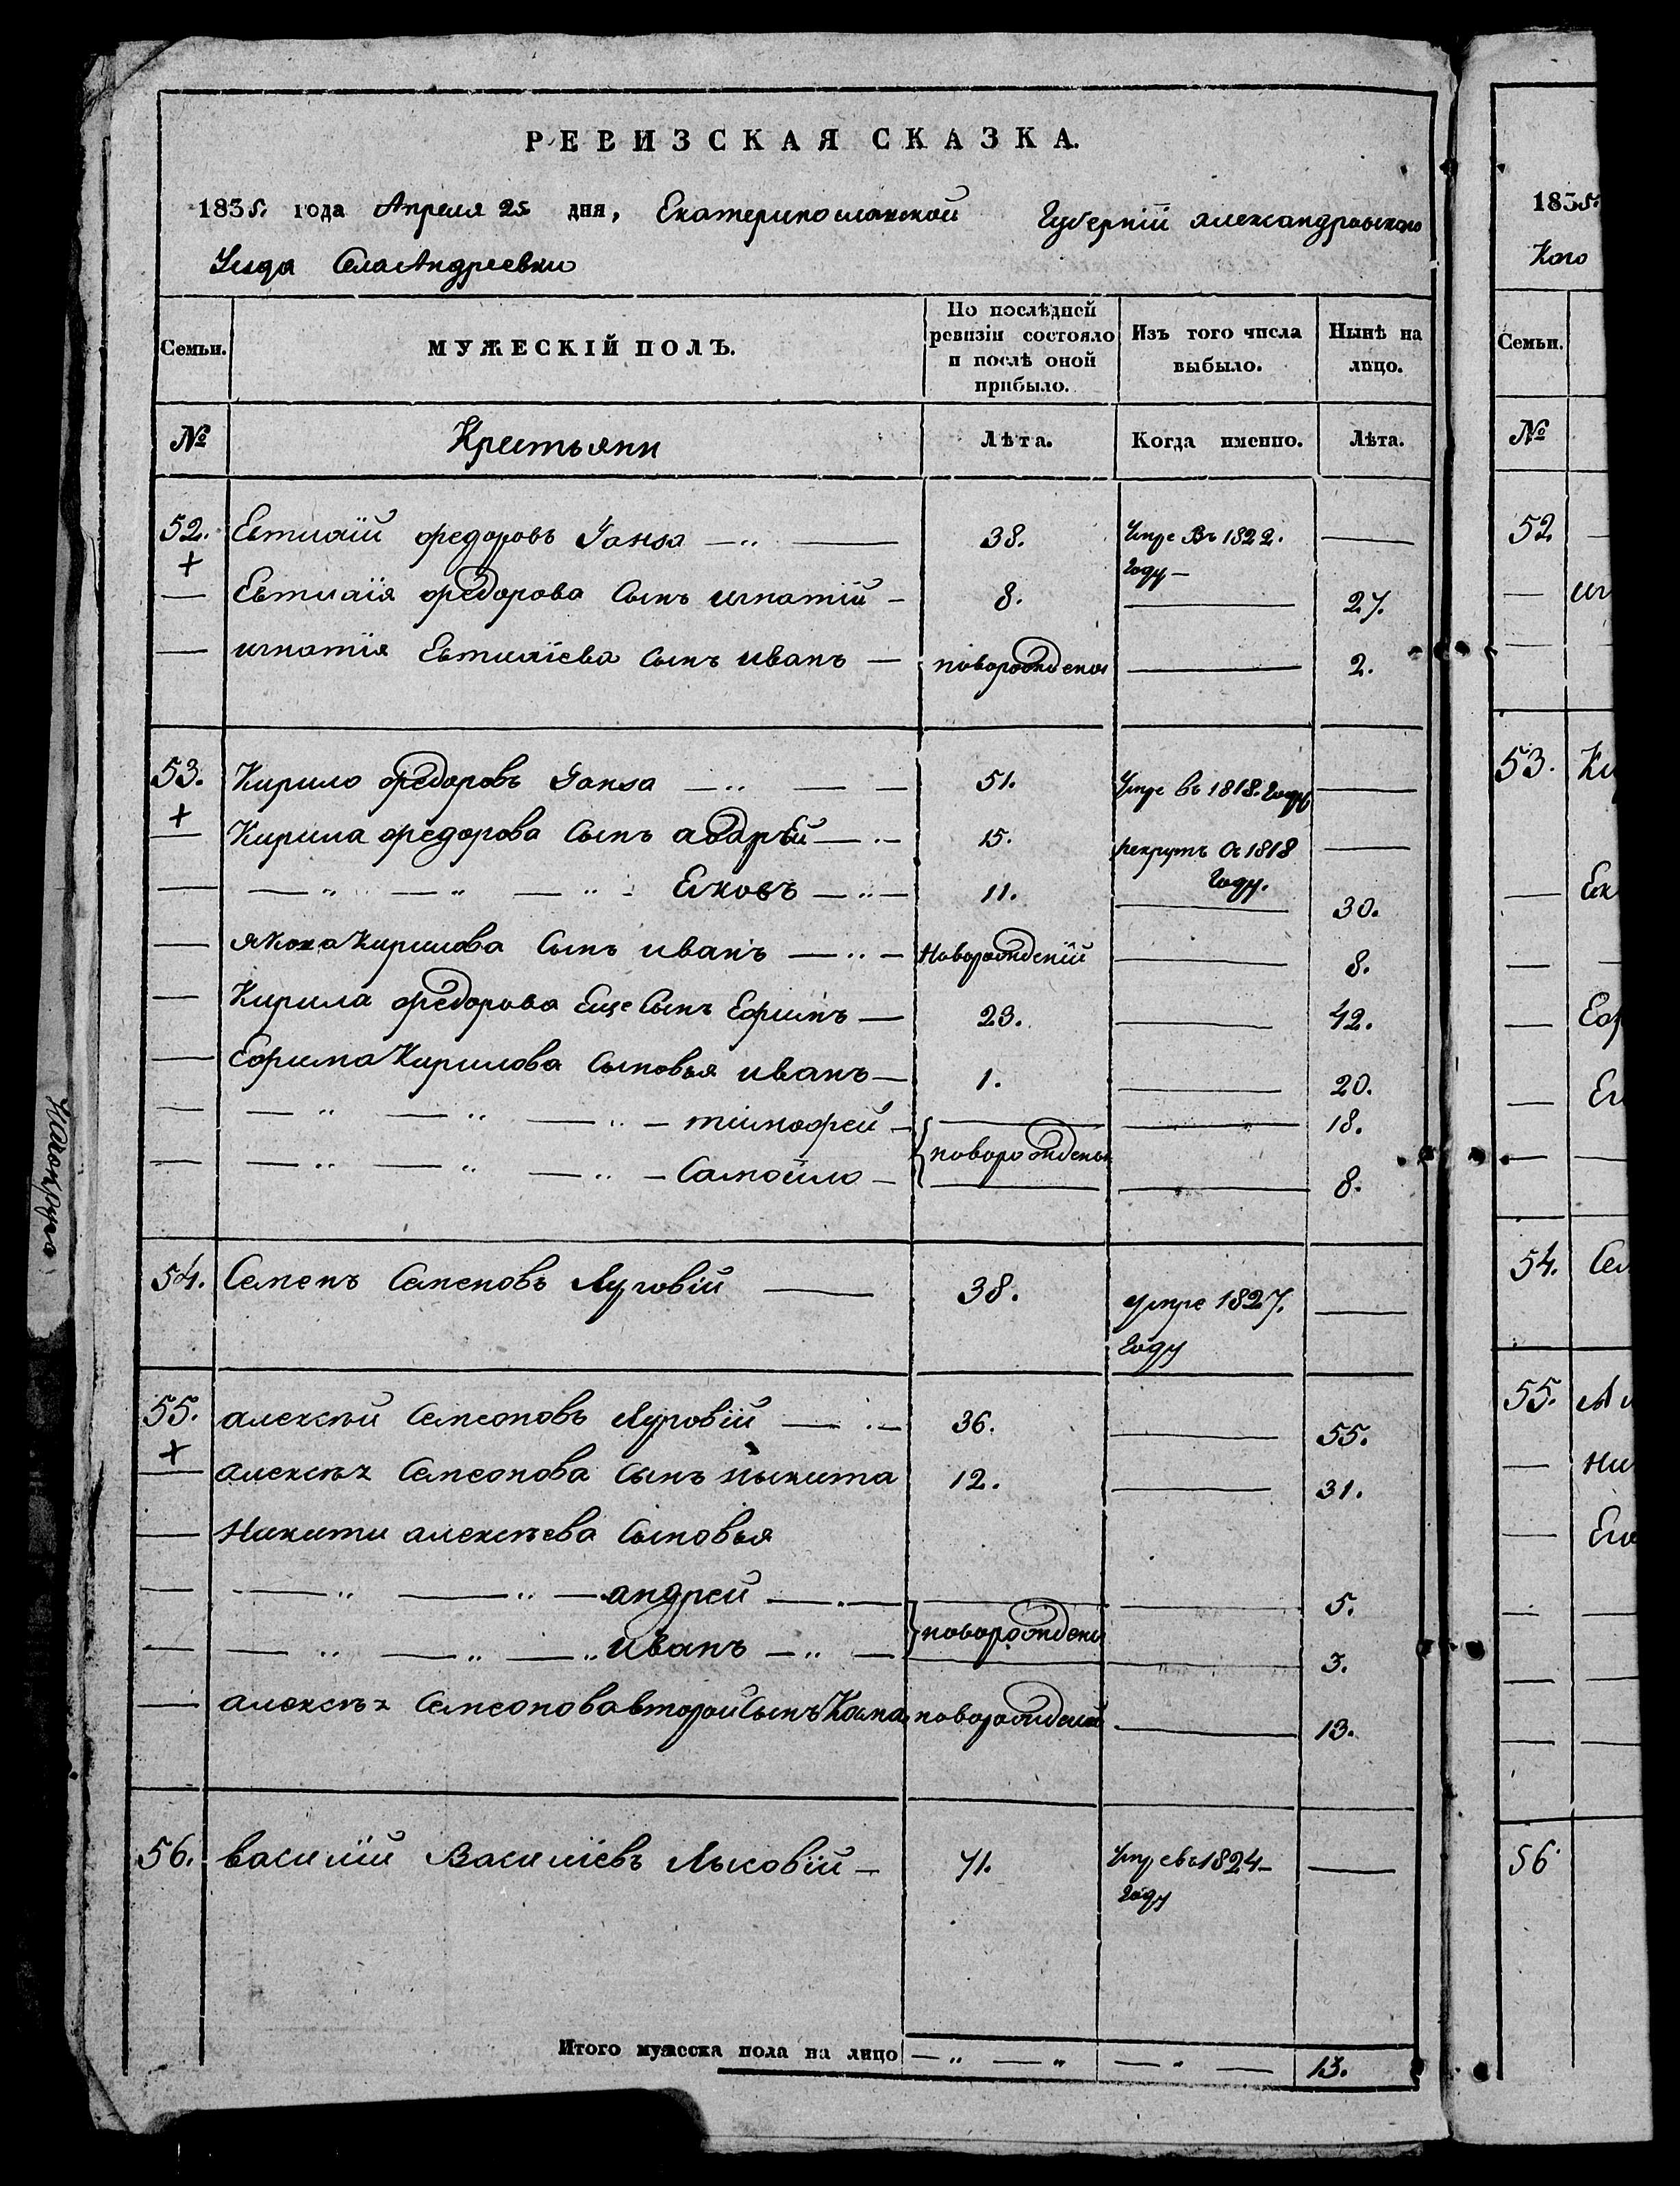 РЕВИЗСКАЯ СКАЗКА.
1835. года Апреля 25 дня, Екатеринославской Губернїй Александровского
Уезда Села Андреевки
Семьи.
МУЖЕСКІЙ ПОЛЪ.
По послѣдней ревизіи состояло и послѣ оной прибыло.
Изъ того числа выбыло.
Нынѣ на лицо.
№
Крестьяни
Лѣта.
Когда именно.
Лѣта.
52. Евтихїй федоровъ Ганза 38. Умре Въ 1822. году
Евтихїя федорова Сынъ игнатїй 8. 27.
игнатїя Евтихїева Сынъ иванъ новорожденой 2.
53. Кирило федоровъ Ганза 51. Умре въ 1818. году
Кирила федорова Сынъ 15. рекрутъ въ 1818 году.
Ековъ 11. 30.
якова Кирилова Сынъ иванъ Новорожденїй 8.
Кирила федорова Еще Сынъ Ефимъ 23. 42.
Ефима Кирилова Сыновья иванъ 1. 20.
тимофей 18.
новорожденой
Самойло 8.
54. Семенъ Семеновъ Луговїй 38. умре 1827. году
55. алексѣй Семеоновъ Луговїй 36. 55.
алексѣя Семеонова Сынъ Ныкита 12. 31.
Никити алексѣева Сыновья
андрей 5.
новорождени
иванъ 3.
алексѣя Семеонова второй Сынъ Козма новорожденой 13.
56. василїй Василїевъ Лысовїй 71. Умре въ 1824 году
Итого мужеска пола на лицо 13.
1835.
Кого
Семьи.
№
52
53. Ки
Ек
Еф
54. Сем
55. Ал
Ни
56